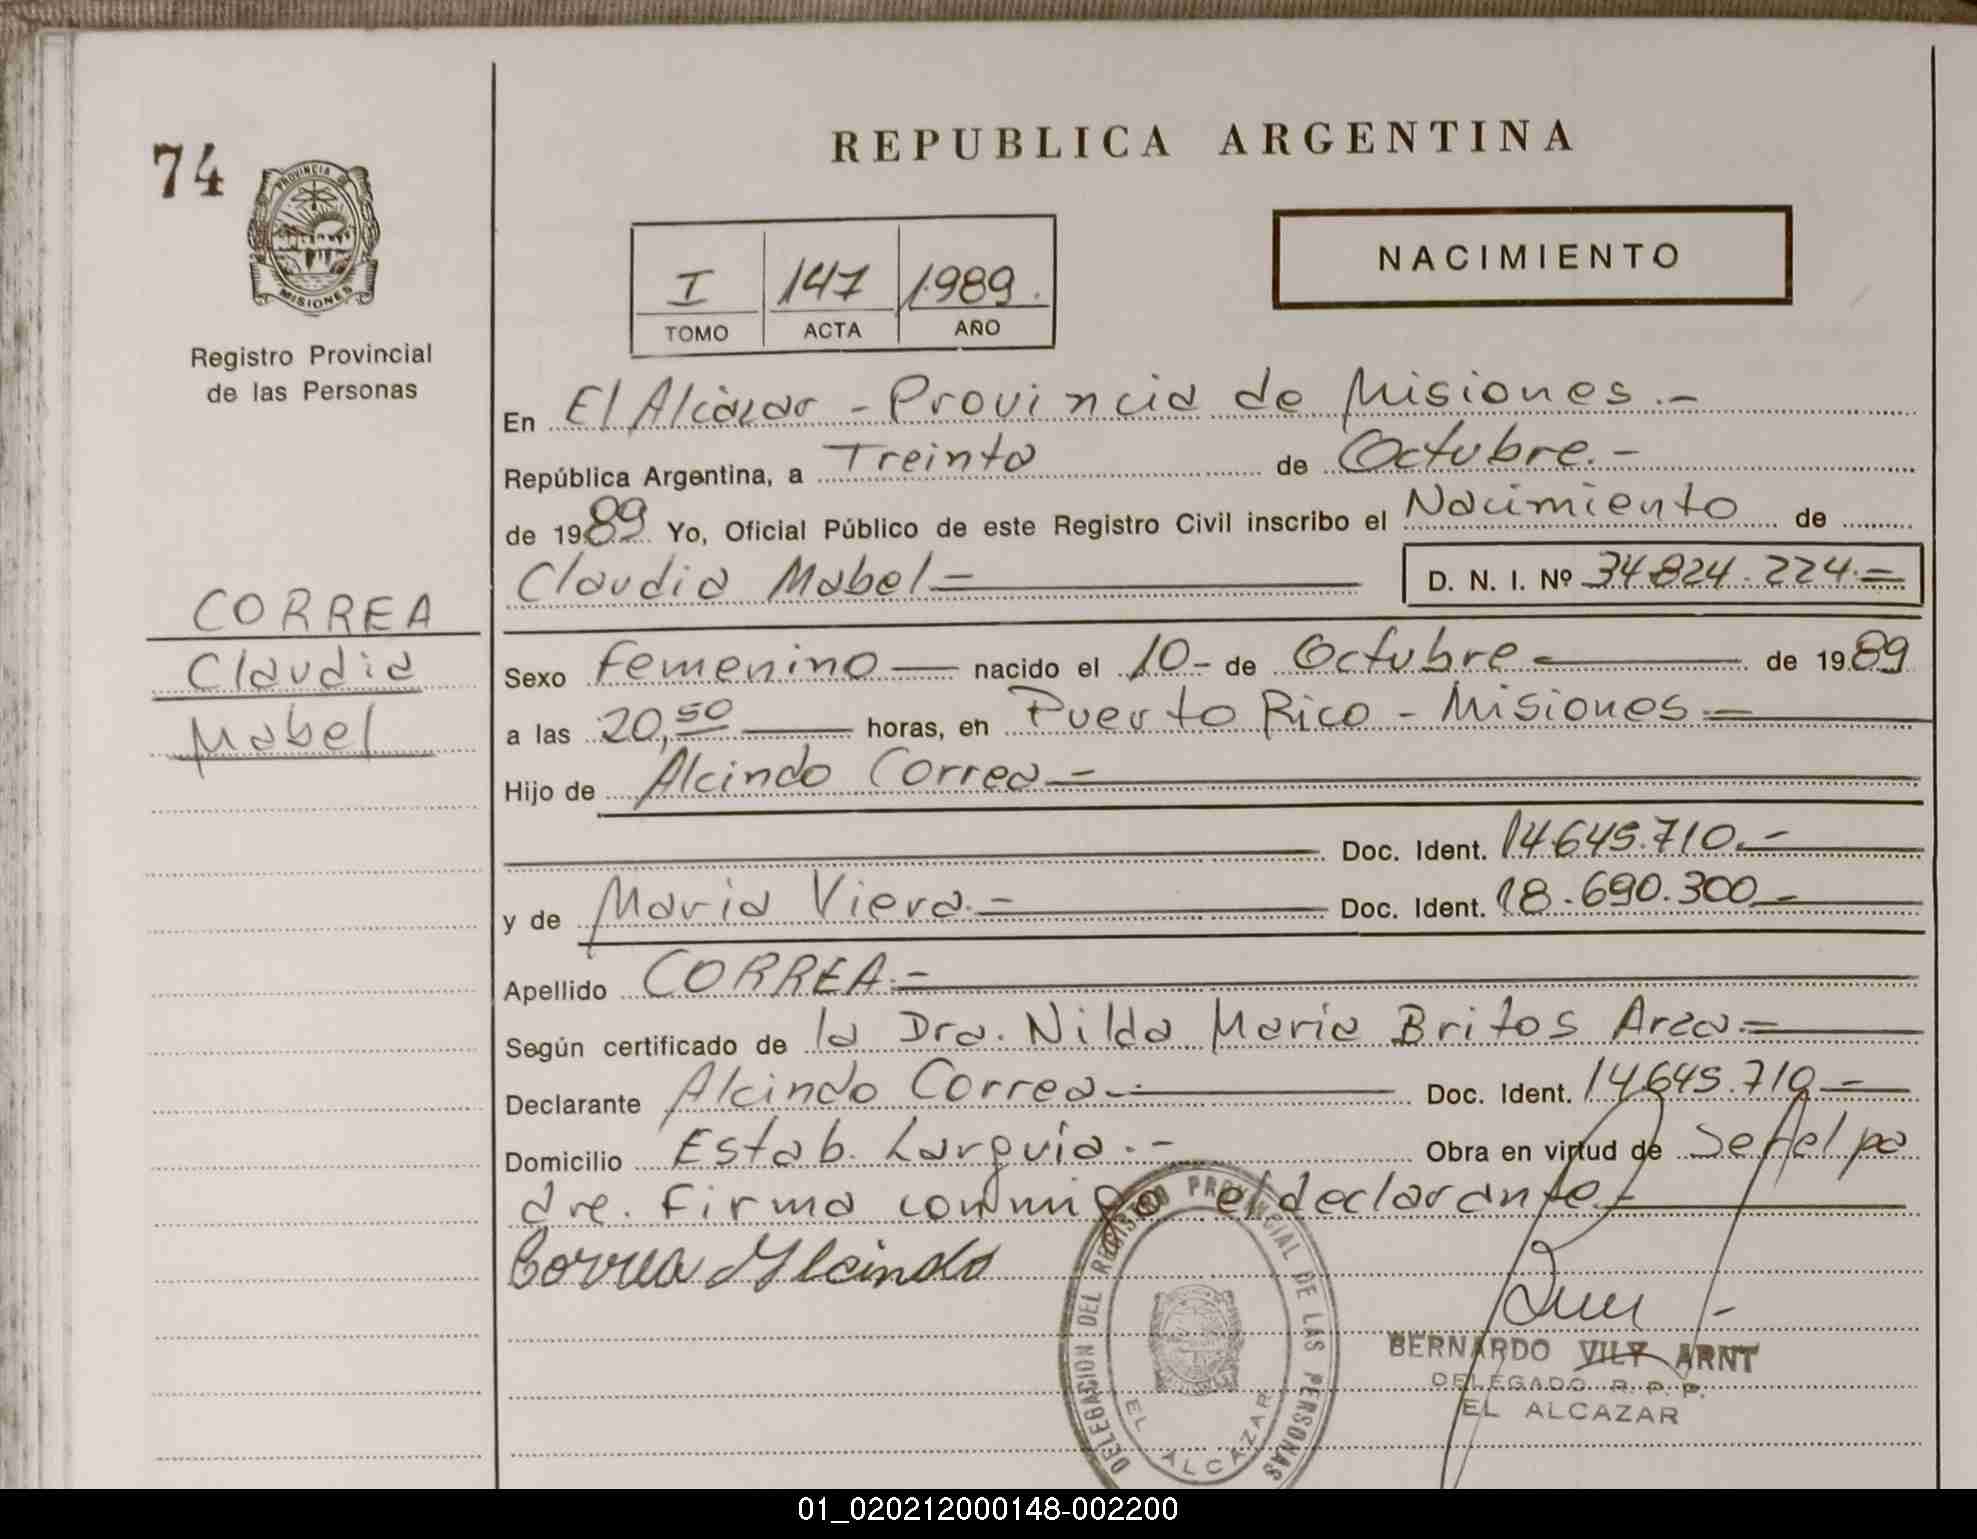 74
PROVINCIA DE
MISIONES
Registro Provincial
de las Personas
CORREA
Claudia
Mabel
REPUBLICA ARGENTINA
NACIMIENTO
I 147 1989.
TOMO ACTA AÑO
En El Alcázar - Provincia de Misiones.-
República Argentina, a Treinta de Octubre.-
de 1989 Yo, Oficial Público de este Registro Civil inscribo el Nacimiento de
Claudia Mabel= D. N. I. Nº 34.824.224.=
Sexo Femenino— nacido el 10- de Octubre— de 1989
a las 20,50 — horas, en Puerto Rico - Misiones.=
Hijo de Alcindo Correa.=
Doc. Ident. 14.645.710.-
y de Maria Viera.- Doc. Ident. 18.690.300.-
Apellido CORREA.=
Según certificado de la Dra. Nilda María Britos Arza.=
Declarante Alcindo Correa.- Doc. Ident. 14.645.710.-
Domicilio Estab. Larguía.- Obra en virtud de Ser el pa
dre. Firma conmigo el declarante.-
Correa Alcindo
DELEGACION DEL REGISTRO PROVINCIAL DE LAS PERSONAS
EL ALCAZAR
BERNARDO VILY ARNT
DELEGADO R. P. P.
EL ALCAZAR
01_020212000148-002200